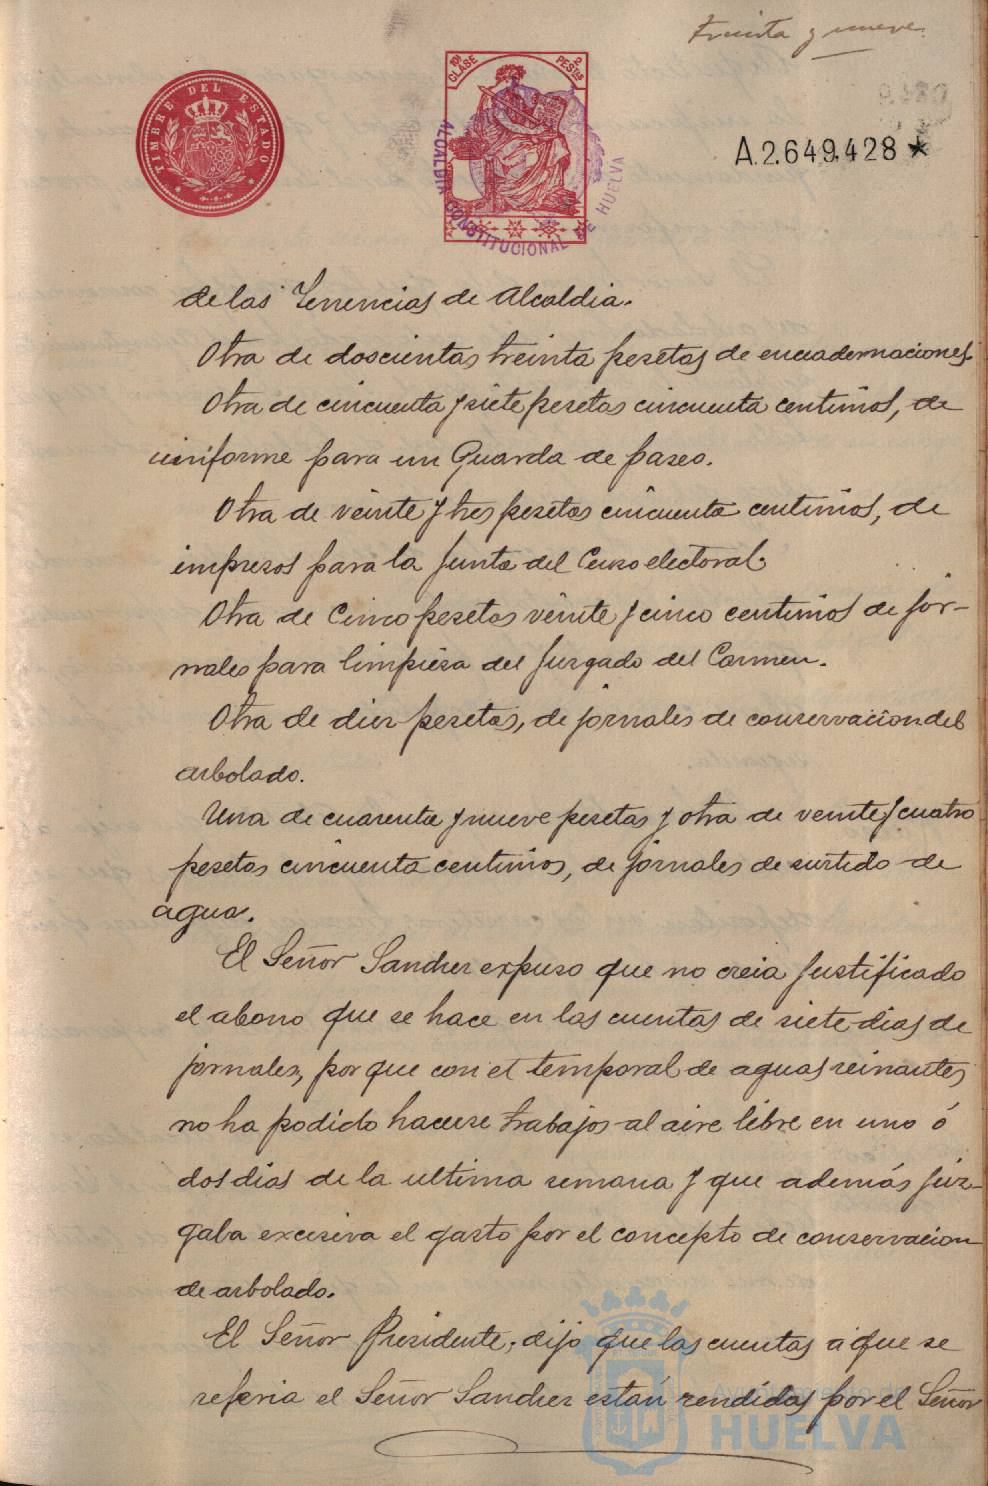 Treinta y nueve
TIMBRE DEL ESTADO
10ª CLASE
2 PESTAS
ALCALDIA CONSTITUCIONAL DE HUELVA
A.2.649.428
de las Tenencias de Alcaldia.
Otra de doscientas treinta pesetas de encuadernaciones.
Otra de cincuenta y siete pesetas cincuenta centimos, de
uniforme para un Guarda de paseo.
Otra de veinte y tres pesetas cincuenta centimos, de
impresos para la Junta del Censo electoral.
Otra de Cinco pesetas veinte y cinco centimos de jor-
nales para limpieza del Juzgado del Carmen.
Otra de diez pesetas, de jornales de conservacion del
arbolado.
Una de cuarenta y nueve pesetas y otra de veinte y cuatro
pesetas cincuenta centimos, de jornales de surtido de
agua.
El Señor Sanchez expuso que no creia justificado
el abono que se hace en las cuentas de siete dias de
jornales, por que con el temporal de aguas reinantes
no ha podido hacerse trabajos al aire libre en uno ó
dos dias de la ultima semana y que además juz-
gaba excesiva el gasto por el concepto de conservacion
de arbolado.
El Señor Presidente, dijo que las cuentas a que se
referia el Señor Sanchez están rendidas por el Señor
HUELVA